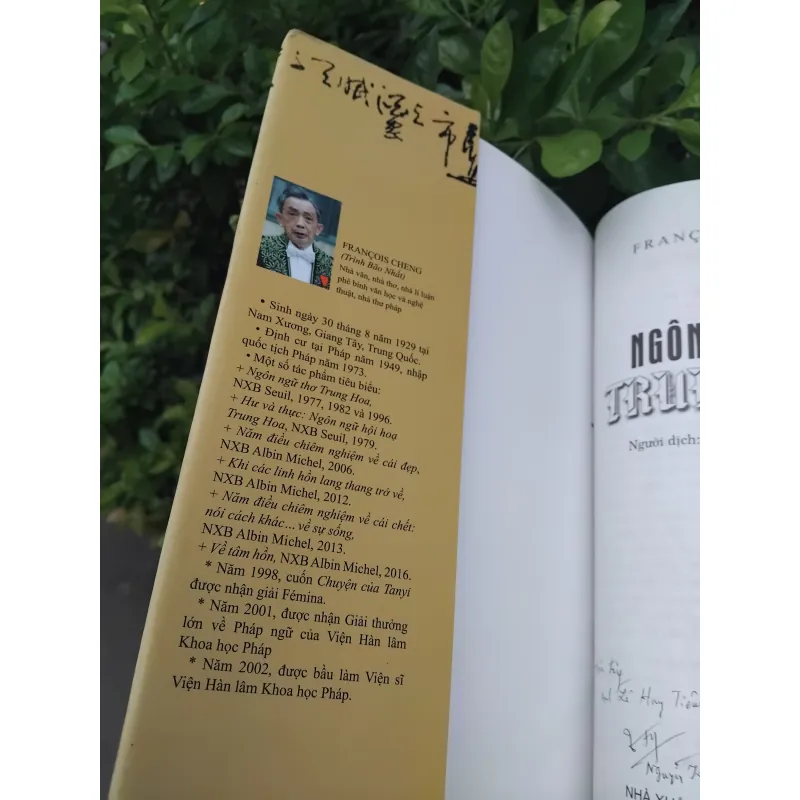 FRANÇOIS CHENG
(Trình Bão Nhất)
Nhà văn, nhà thơ, nhà lí luận
phê bình văn học và nghệ
thuật, nhà thư pháp
• Sinh ngày 30 tháng 8 năm 1929 tại
Nam Xương, Giang Tây, Trung Quốc.
• Định cư tại Pháp năm 1949, nhập
quốc tịch Pháp năm 1973.
• Một số tác phẩm tiêu biểu:
+ Ngôn ngữ thơ Trung Hoa,
NXB Seuil, 1977, 1982 và 1996.
+ Hư và thực: Ngôn ngữ hội hoạ
Trung Hoa, NXB Seuil, 1979.
+ Năm điều chiêm nghiệm về cái đẹp,
NXB Albin Michel, 2006.
+ Khi các linh hồn lang thang trở về,
NXB Albin Michel, 2012.
+ Năm điều chiêm nghiệm về cái chết:
nói cách khác... về sự sống,
NXB Albin Michel, 2013.
+ Về tâm hồn, NXB Albin Michel, 2016.
* Năm 1998, cuốn Chuyện của Tanyi
được nhận giải Fémina.
* Năm 2001, được nhận Giải thưởng
lớn về Pháp ngữ của Viện Hàn lâm
Khoa học Pháp
* Năm 2002, được bầu làm Viện sĩ
Viện Hàn lâm Khoa học Pháp.
FRANÇ
NGÔN
TRU
Người dịch:
Lê Huy Tiêu
NHÀ XUẤ